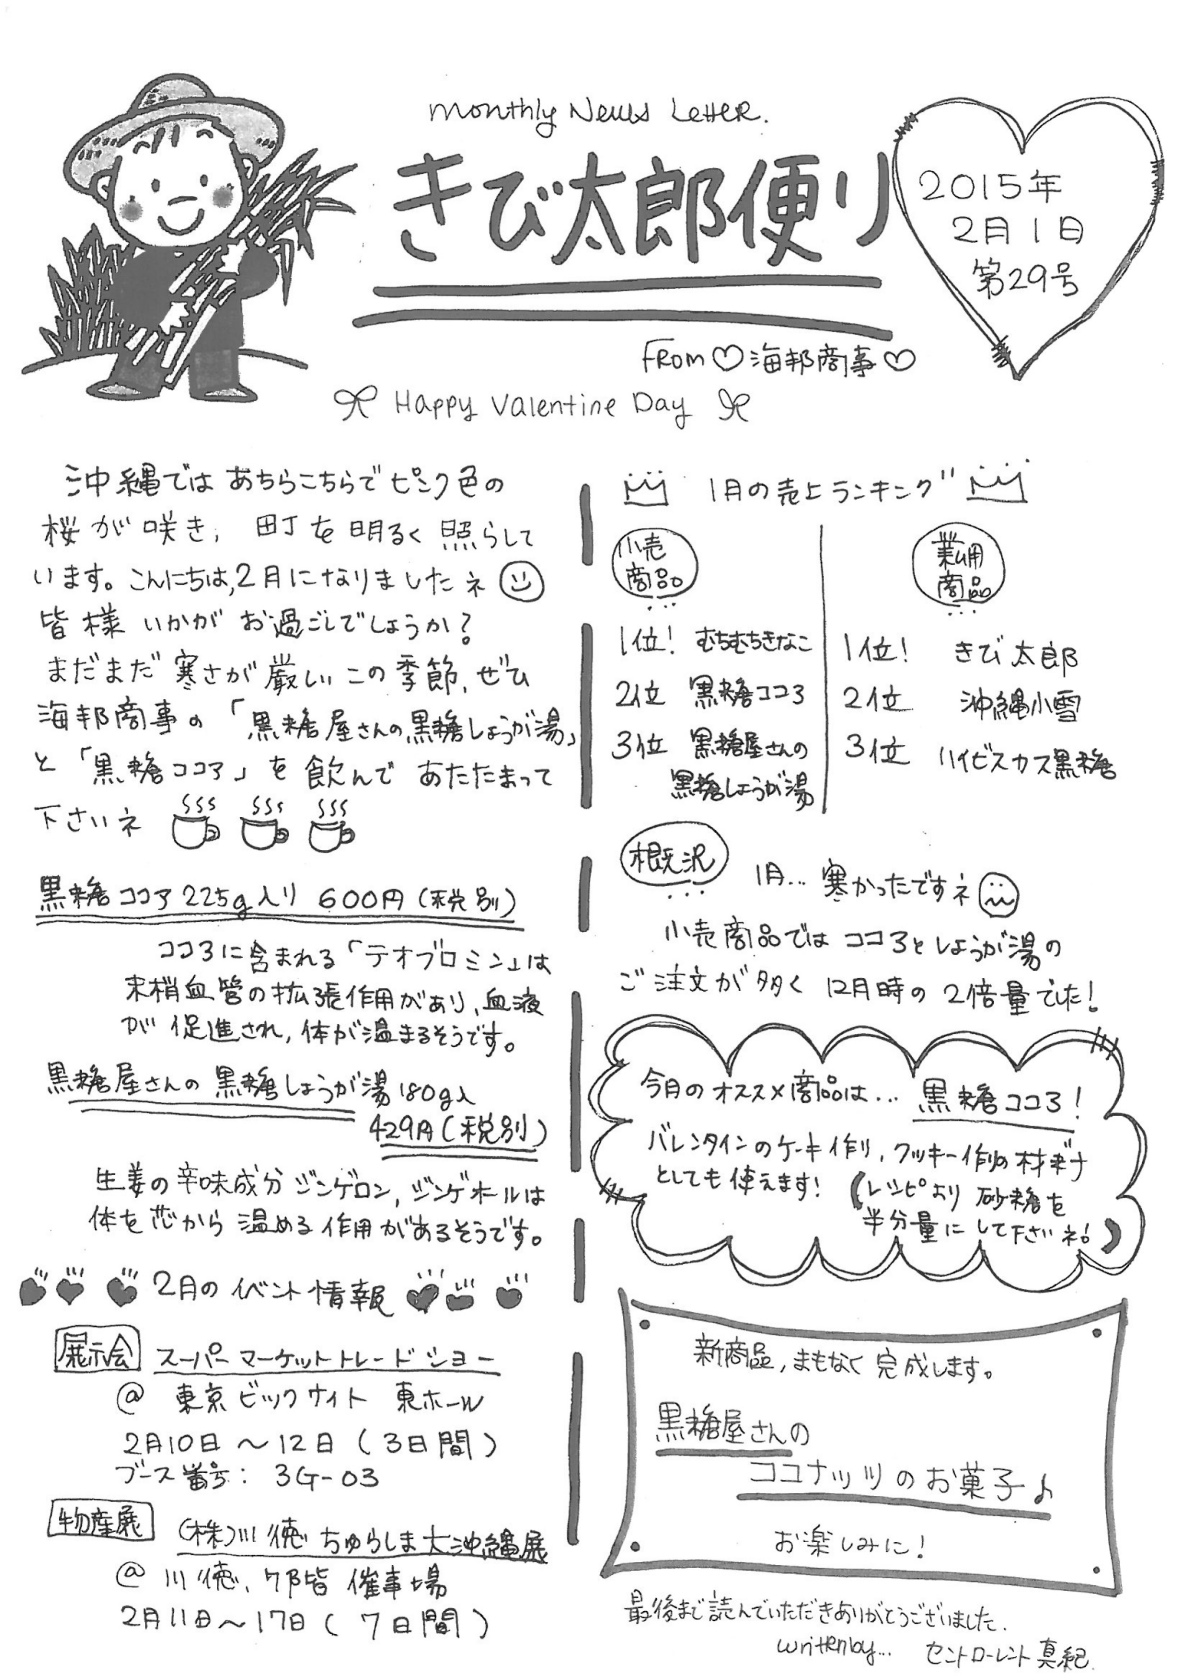 Monthly News Letter.
きび太郎便り
2015年
2月1日
第29号
From♡海邦商事♡
Happy Valentine Day
沖縄ではあちらこちらでピンク色の
桜が咲き, 町を明るく照らして
います。こんにちは,2月になりましたネ
皆様いかがお過ごしでしょうか?
まだまだ寒さが厳しいこの季節, ぜひ
海邦商事の「黒糖屋さんの黒糖しょうが湯」
と「黒糖ココア」を飲んであたたまって
下さいネ
黒糖ココア225g入り 600円(税別)
ココアに含まれる「テオブロミン」は
末梢血管の拡張作用があり, 血液
が促進され, 体が温まるそうです。
黒糖屋さんの黒糖しょうが湯180g入
429円(税別)
生姜の辛味成分ジンゲロン, ジンゲオールは
体を芯から温める作用があるそうです。
2月のイベント情報
展示会 スーパーマーケットトレードショー
@ 東京ビックサイト 東ホール
2月10日〜12日(3日間)
ブース番号: 3G-03
物産展 (株)川徳 ちゅらしま大沖縄展
@ 川徳, 7階 催事場
2月11日〜17日(7日間)
1月の売上ランキング
小売商品
1位! むちむちきなこ
2位 黒糖ココア
3位 黒糖屋さんの
黒糖しょうが湯
業務用商品
1位! きび太郎
2位 沖縄小雪
3位 ハイビスカス黒糖
概況
1月... 寒かったですネ
小売商品ではココアとしょうが湯の
ご注文が多く 12月時の2倍量でした!
今月のオススメ商品は... 黒糖ココア!
バレンタインのケーキ作り, クッキー作りの材料
としても使えます!
(レシピより砂糖を
半分量にして下さいネ!)
新商品, まもなく完成します。
黒糖屋さんの
ココナッツのお菓子♪
お楽しみに!
最後まで読んでいただきありがとうございました.
written by... セントローレント真紀.